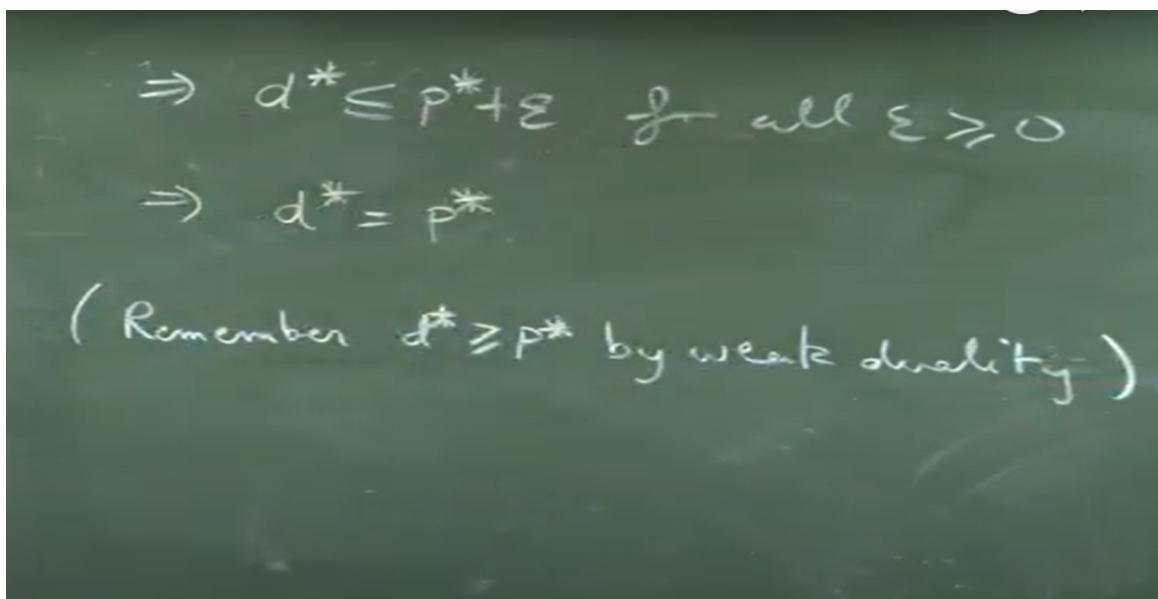 ⇒ d* ≤ p* + ε for all ε ≥ 0
⇒ d* = p*
(Remember d* ≥ p* by weak duality)